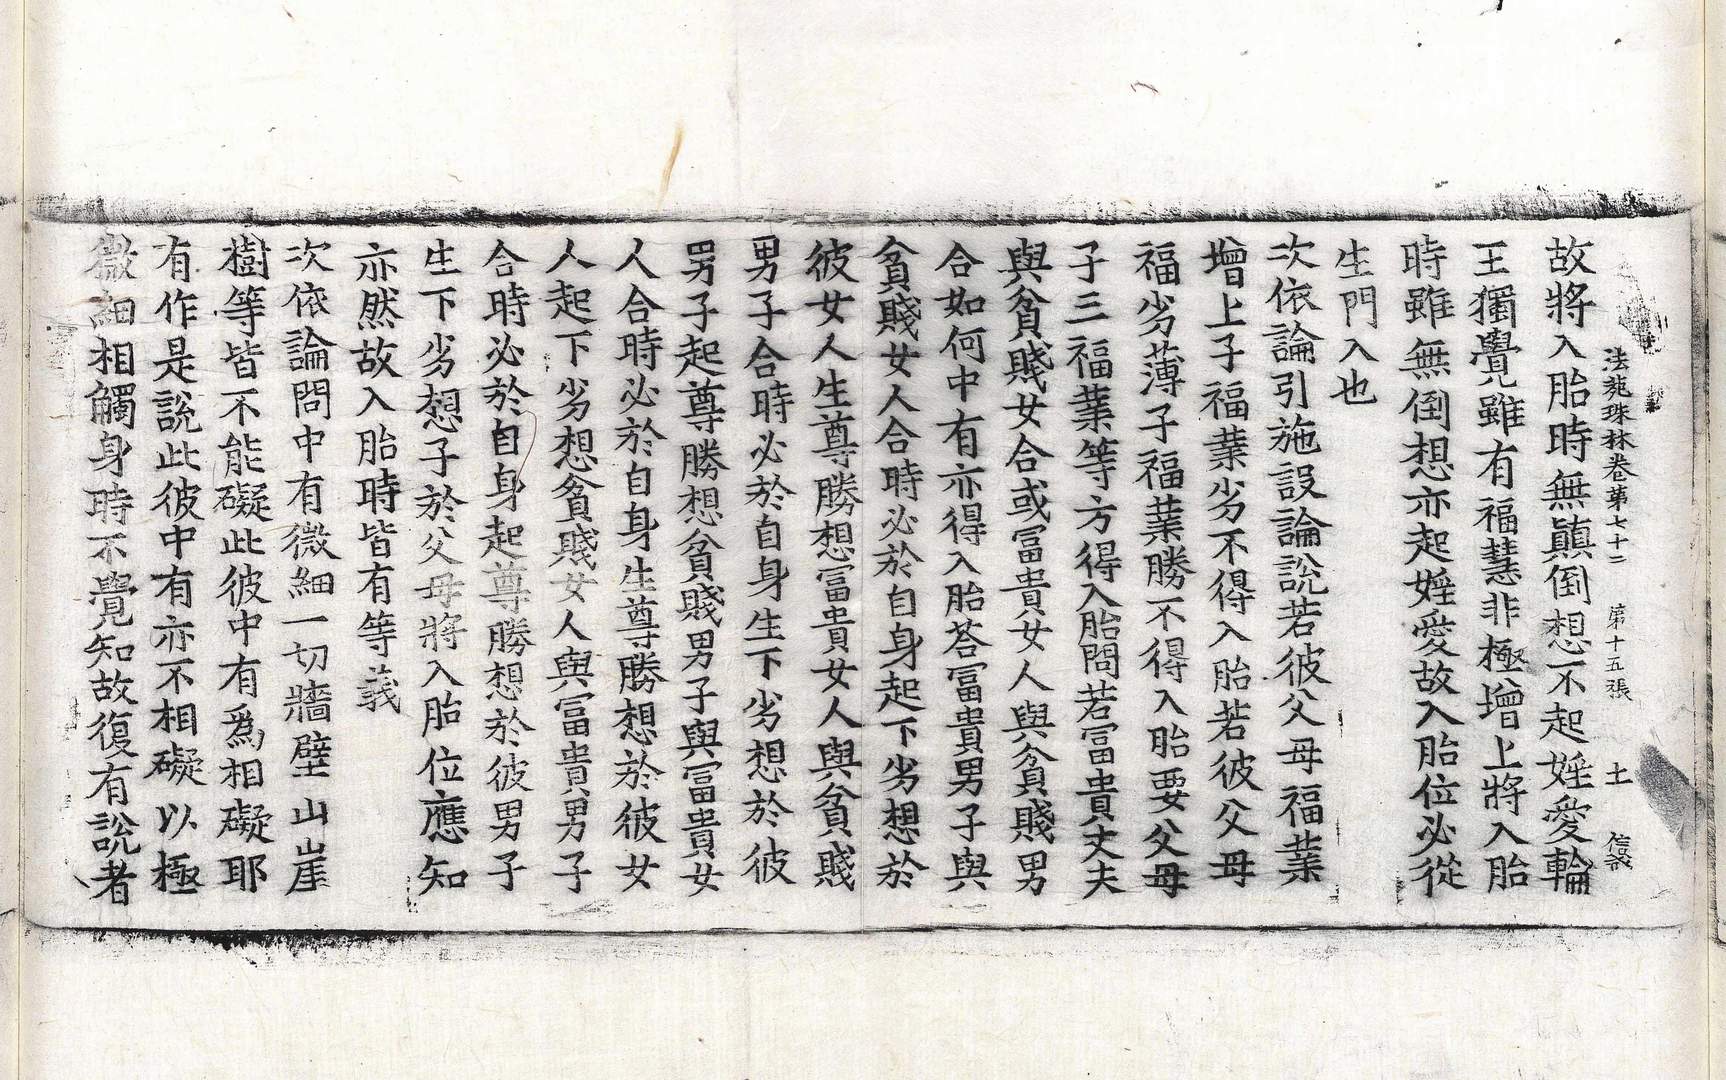 法苑珠林卷第七十二 第十五張 土 信談
故將入胎時無顛倒想不起婬愛輪
王獨覺雖有福慧非極增上將入胎
時雖無倒想亦起婬愛故入胎位必從
生門入也
次依論引施設論說若彼父母福業
增上子福業劣不得入胎若彼父母
福劣薄子福業勝不得入胎要父母
子三福業等方得入胎問若富貴丈夫
與貧賤女合或富貴女人與貧賤男
合如何中有亦得入胎荅富貴男子與
貧賤女人合時必於自身起下劣想於
彼女人生尊勝想富貴女人與貧賤
男子合時必於自身生下劣想於彼
男子起尊勝想貧賤男子與富貴女
人合時必於自身生尊勝想於彼女
人起下劣想貧賤女人與富貴男子
合時必於自身起尊勝想於彼男子
生下劣想子於父母將入胎位應知
亦然故入胎時皆有等義
次依論問中有微細一切牆壁山崖
樹等皆不能礙此彼中有爲相礙耶
有作是說此彼中有亦不相礙以極
微細相觸身時不覺知故復有說者